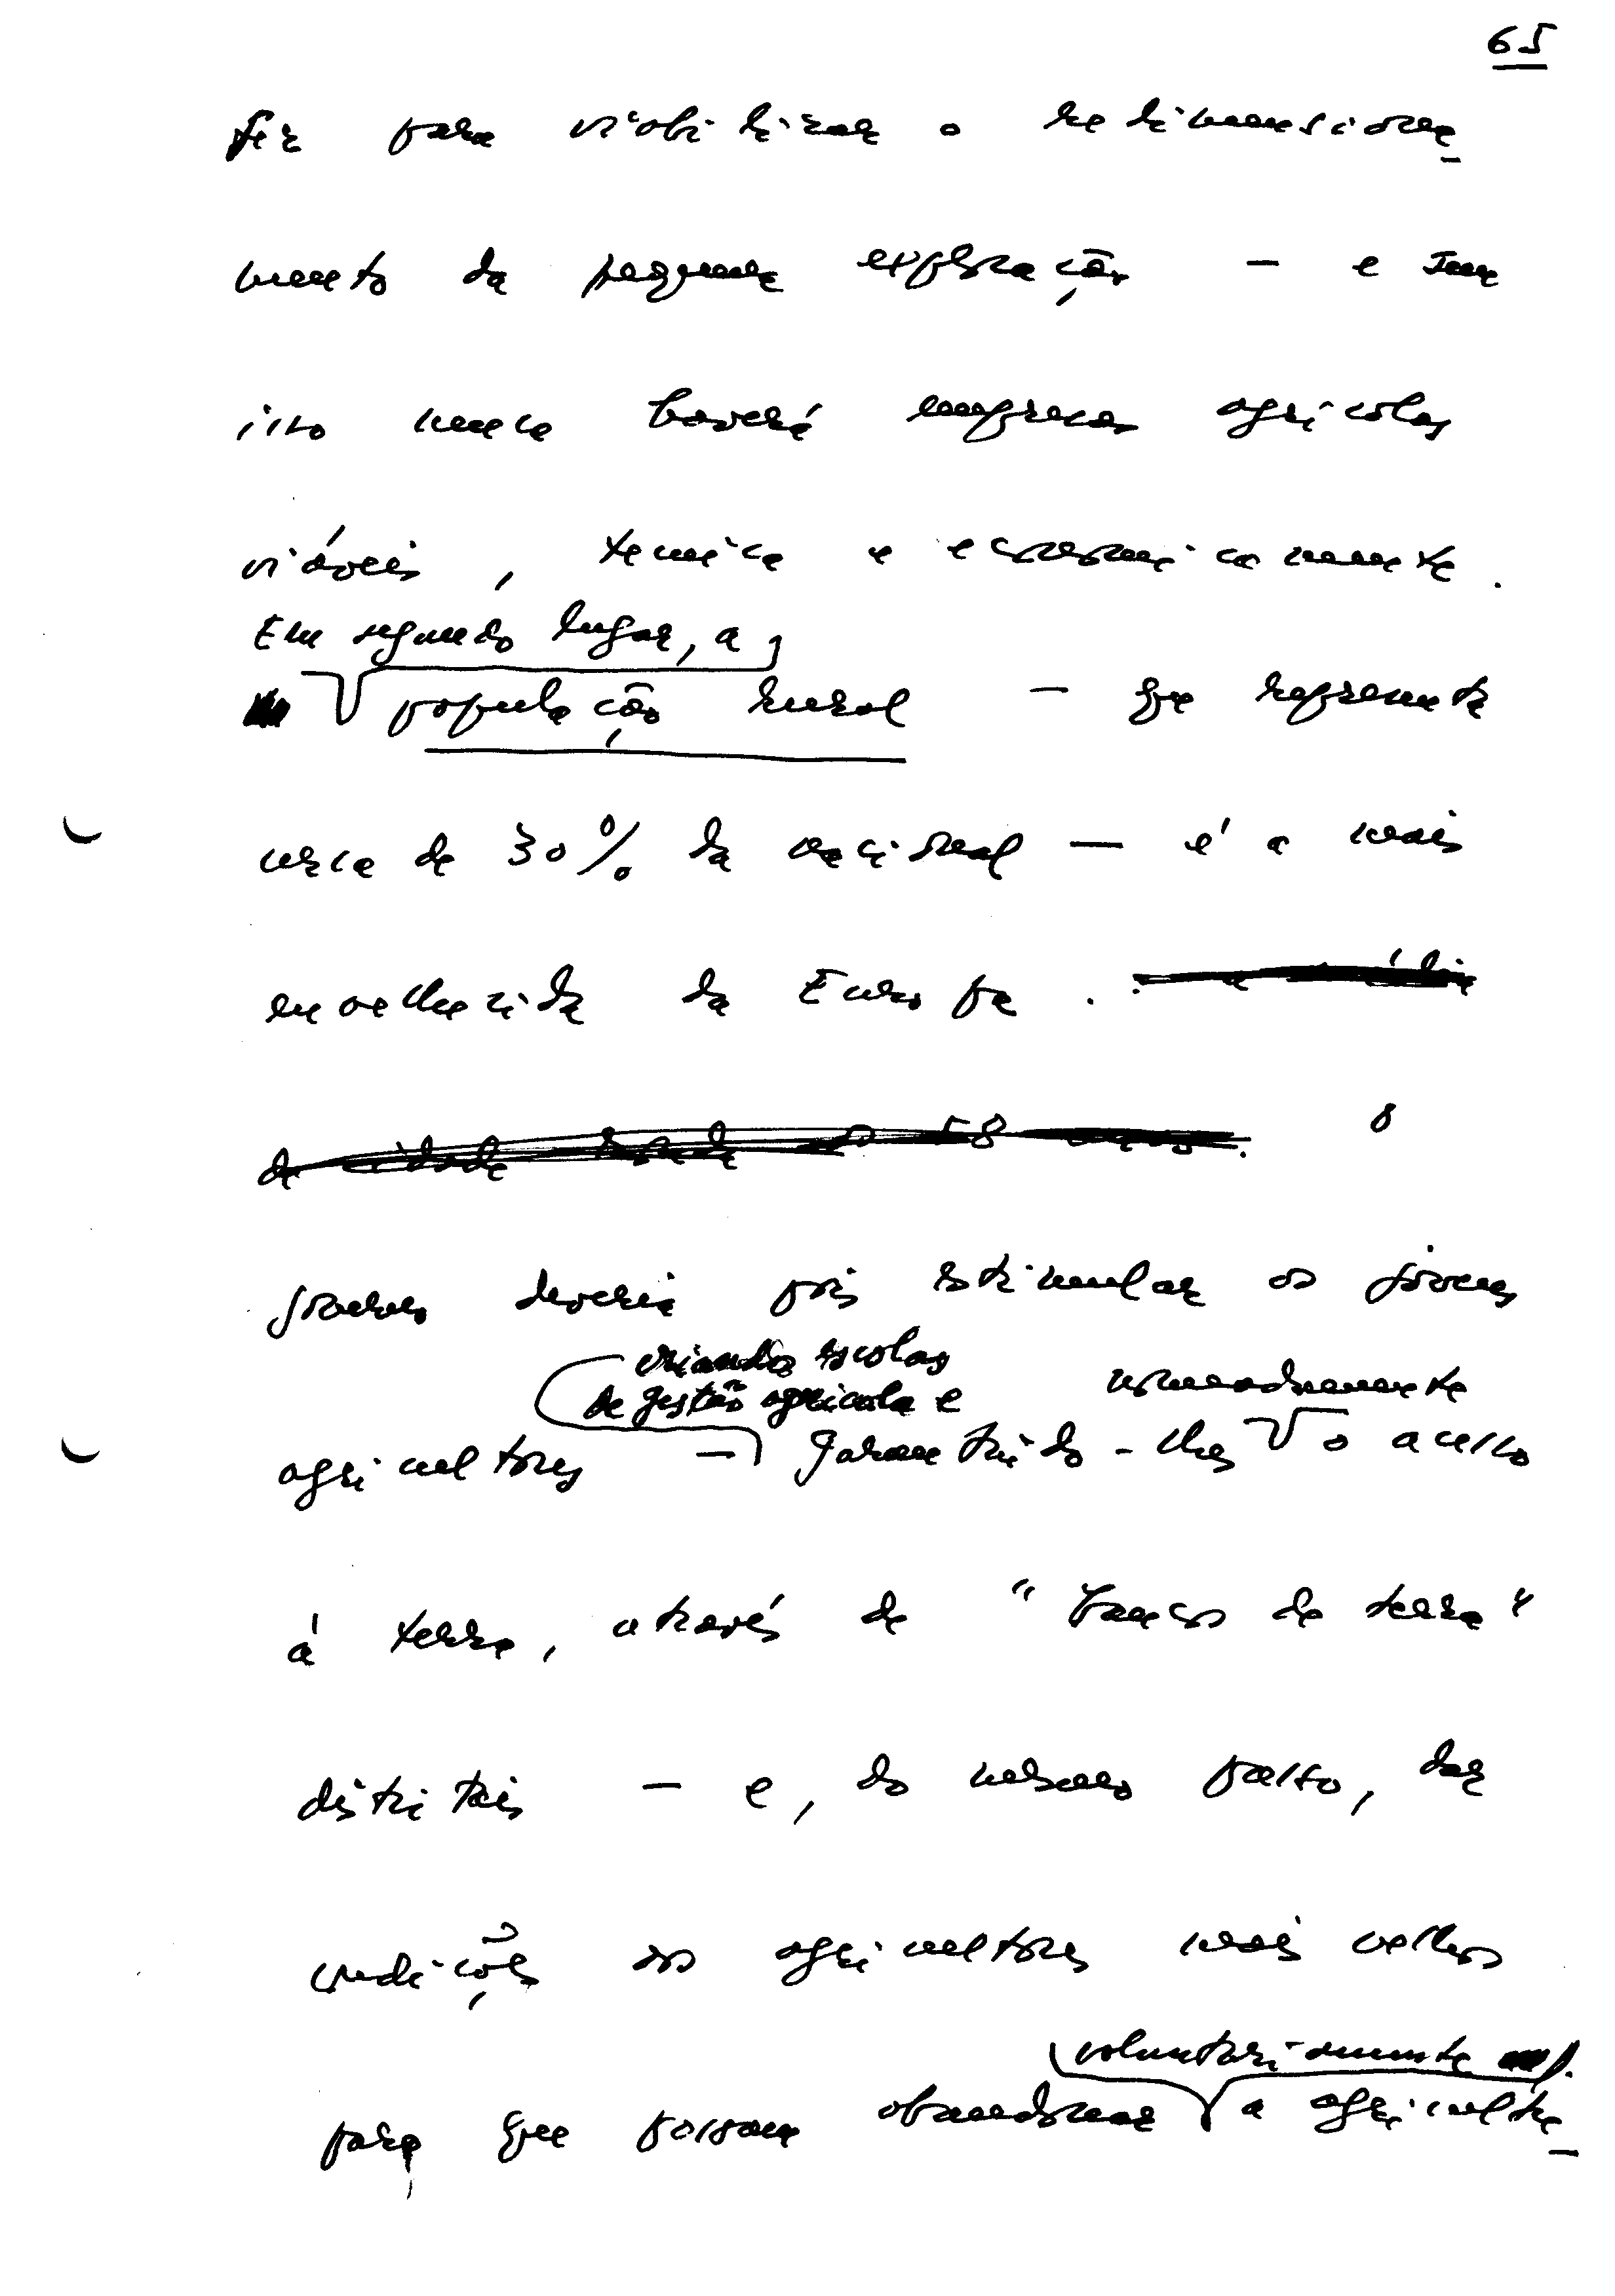 65
fez para viabilizar o redimensiona-
mento da pequena exploração — e sem
isso nunca haverá empresas agrícolas
viáveis, técnica e economicamente.
Em segundo lugar, a
população rural — que representa
cerca de 30% da nacional — é a mais
envelhecida da Europa.
de idade 58 anos. O
governo deveria pois estimular os jovens
criando escolas
de gestão agrícola e nomeadamente
agricultores — garantindo-lhes o acesso
à terra, através de "bancos de terra"
distritais — e, do mesmo passo, dar
condições aos agricultores mais velhos
voluntariamente
para que possam abandonar a agricultu-